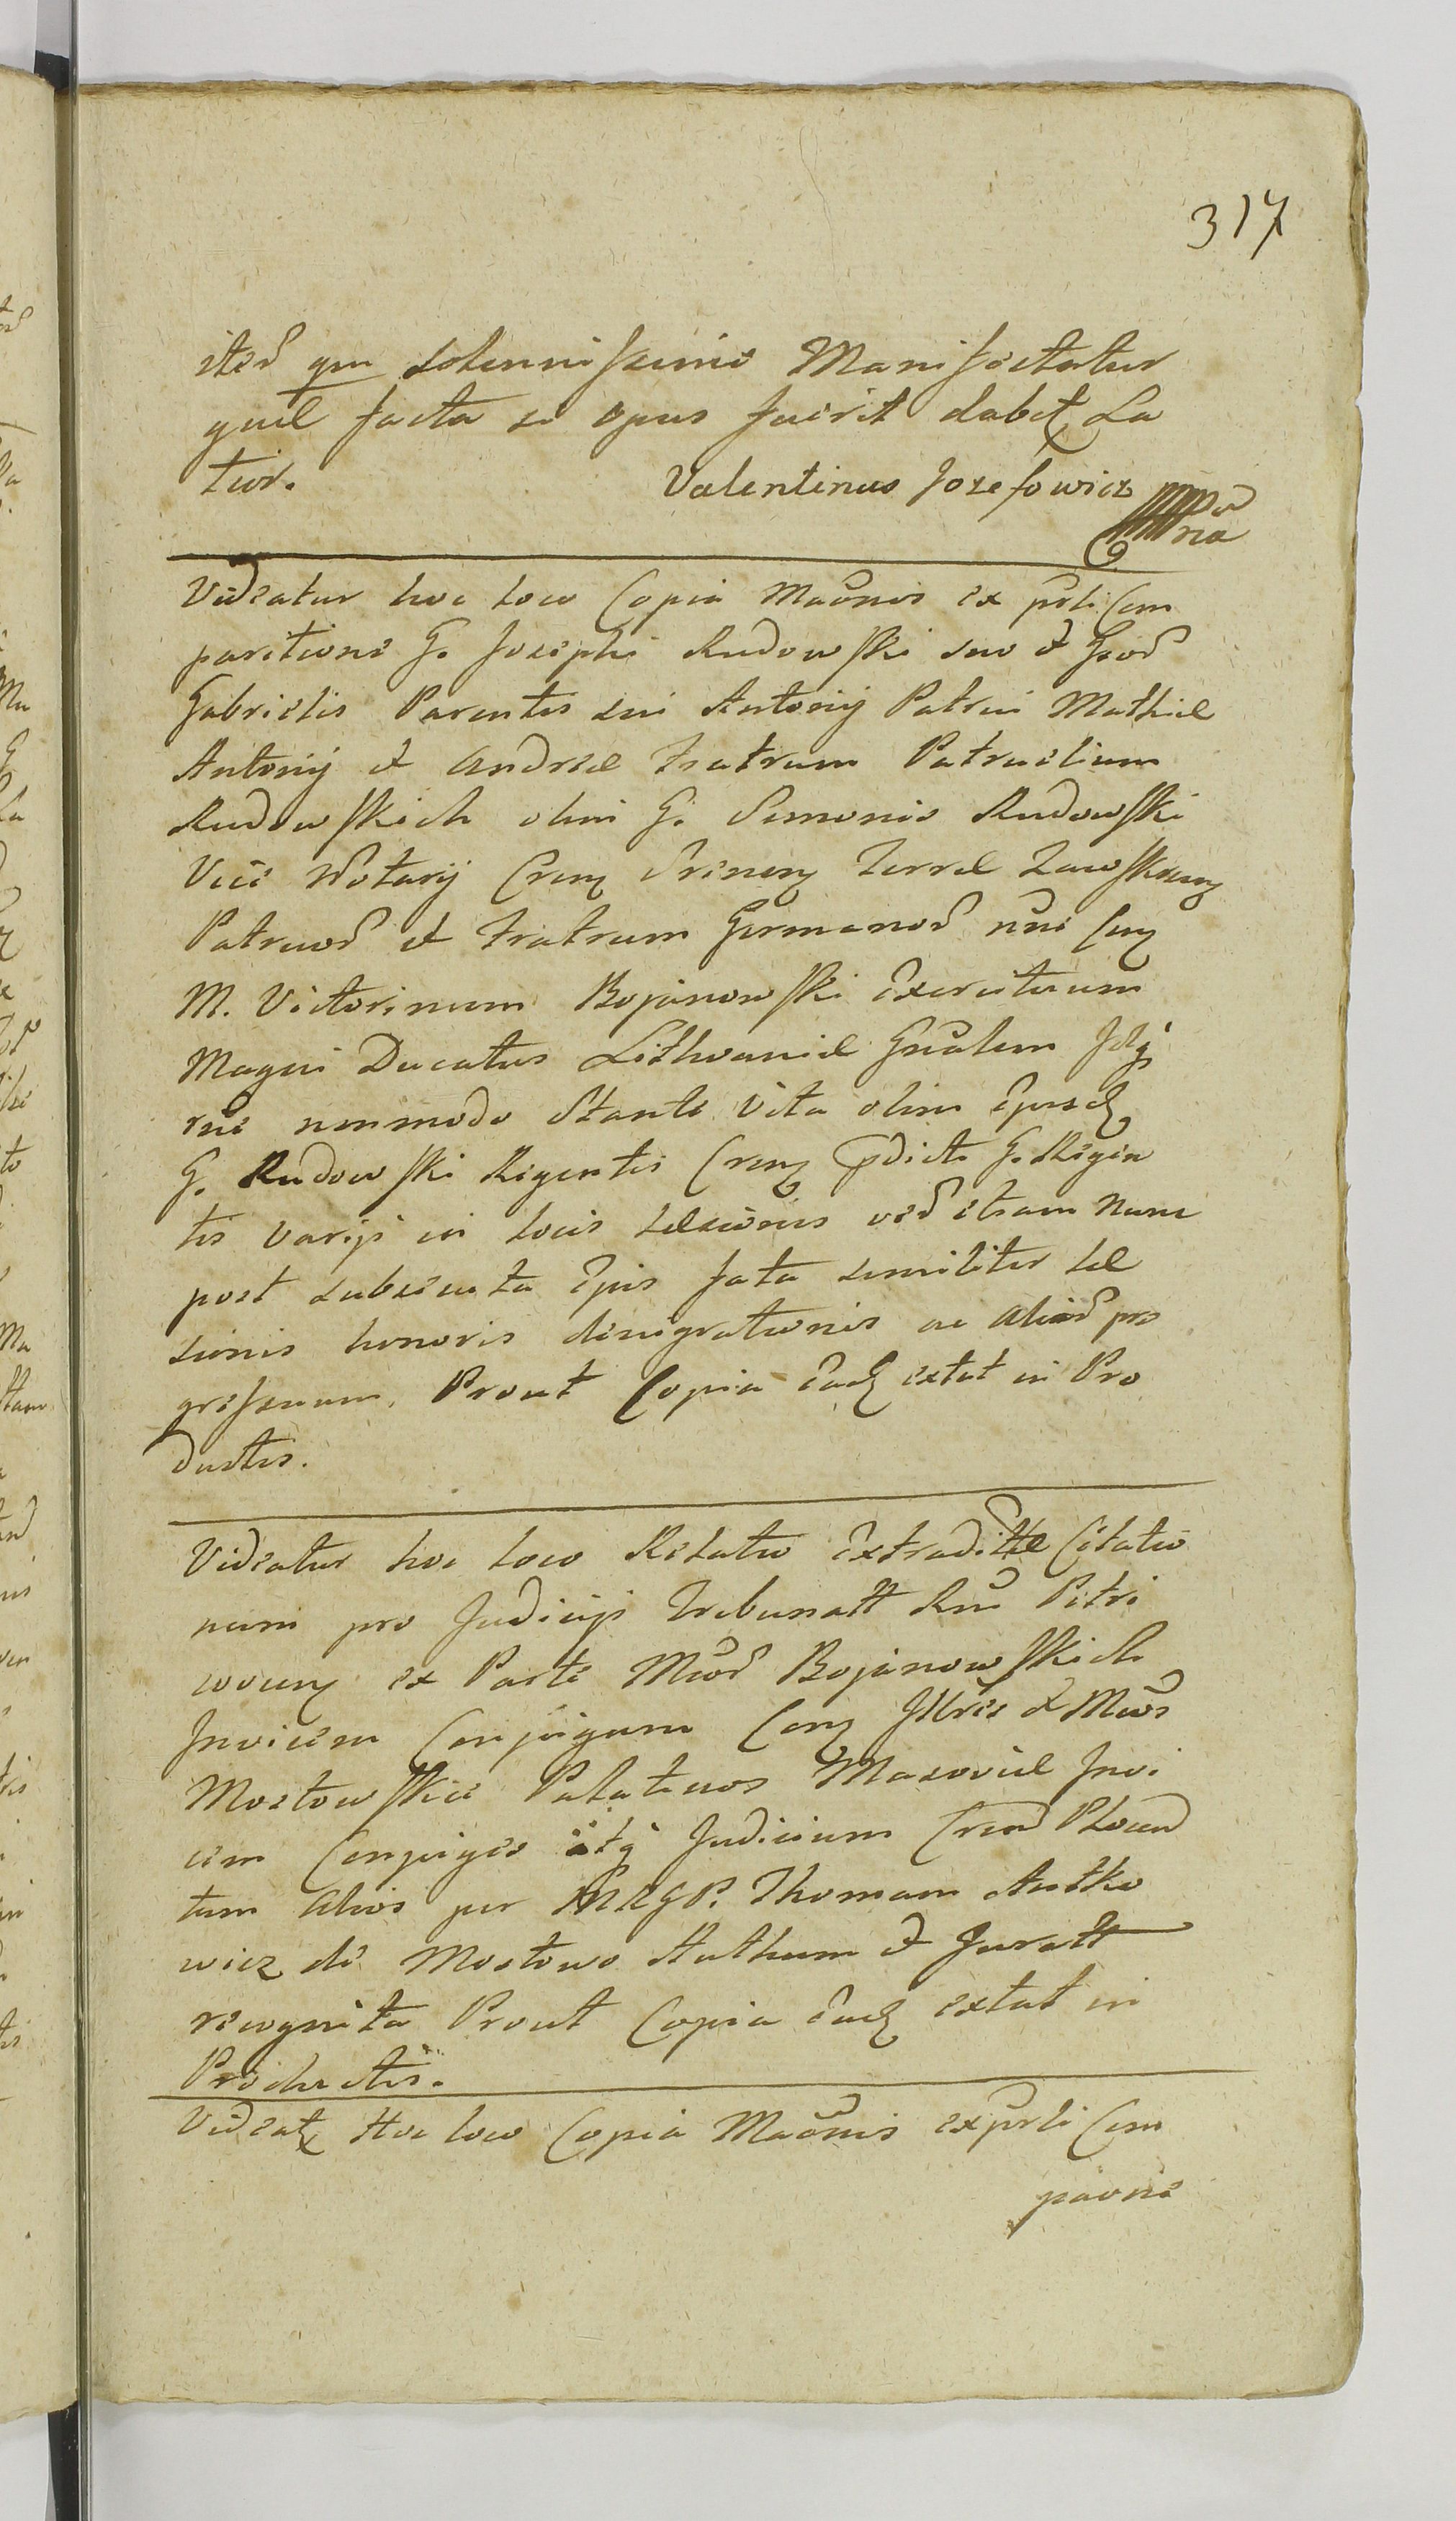 317
solennissime Manifestatur
facta si opus fuerit dabet La
tior. Valentinus Jozefowicz
Videatur hoc loco Copia Maõnis ex psti Com
paritione G. Josephi Rudowski suo et Geod
Gabrielis Parentis sui Antonij Patrui Mathiæ
Antonij et Andreæ Fratrum Patruelium
Rudowskich olim G. Simonis Rudowski
Vice Notarij Crens Terræ
Patruod et Fratrum Germanod
M. Victorinum Bojanowski Exercituum
Magni Ducatus Lithvaniæ Gnalem
nonmodo Stante Vita olim
G. Rudowski Regentis Crens pdicti G. Regen
tis varijs in locis læsionis ved etiam nunc
post subsecuta Ejus fata similiter læ
sionis honoris denigrationis ac aliad pro
gressuum. Prout Copia ead extat in Pro
ductis.
Videatur hoc loco Relatio Extraditæ Citatio
num pro Judicijs Tribunatt Rni Petri
coviens ex Parte Mcod Bojanowskich
Invicem Conjugum Con Illres et Mcos
Mostowskie Palatinos Masoviæ Invi
cem Conjuges itq Judicium Crend Plocen
tum alios per Thomam Antko
wicz de Mostowo Authum et Juratt
recognita Prout Copia ead extat in
Productis.
Videat Hoc loco Copia Maõnis ex psti Com
paõne